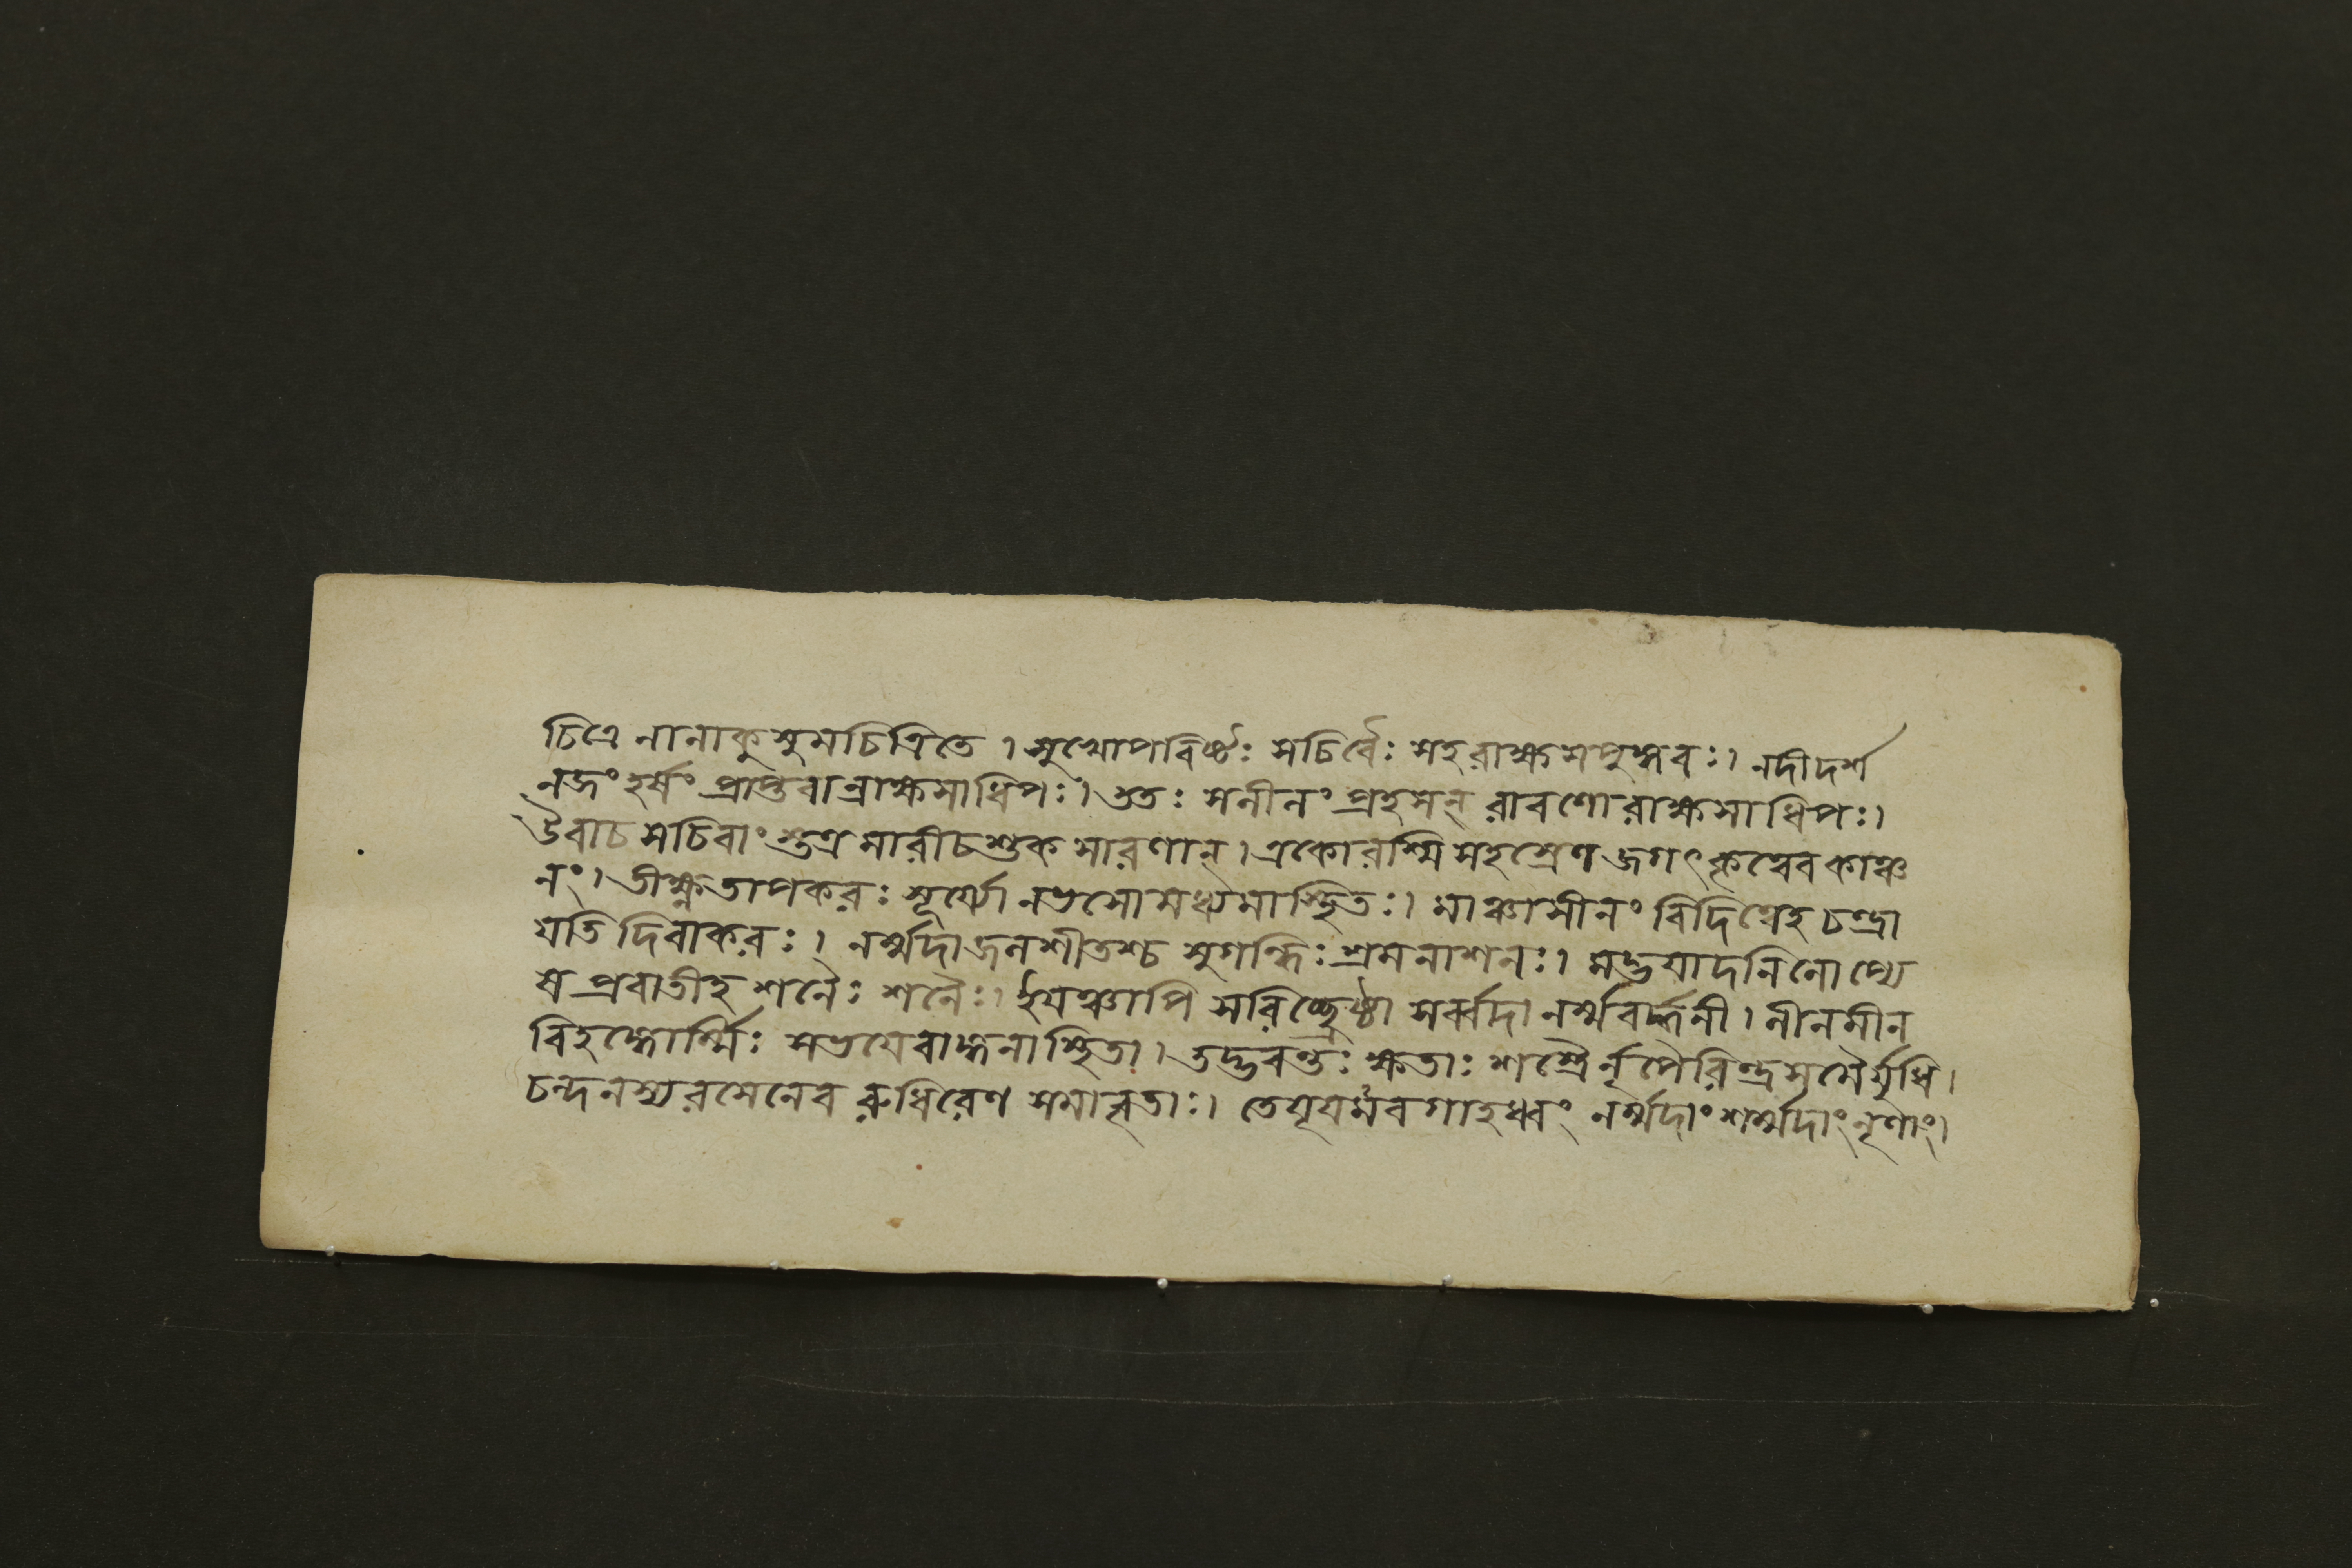 চিত্রে নানাকুসুমচিত্রিতে । সুখোপবিষ্টঃ সচিবৈঃ সহরাক্ষসপুঙ্গবঃ। নদীদর্শ
নজং হর্ষং প্রাপ্তবান্রাক্ষসাধিপঃ। ততঃ সলীলং প্রহসন্ রাবণোরাক্ষসাধিপঃ।
উবাচ সচিবাংস্তত্র মারীচশুক সারণান্। একোরশ্মি সহস্রেণ জগৎকৃত্বেব কাঞ্চ
নং। তীক্ষ্ণতাপকরঃ সূর্য্যো নভসোমধ্যমাস্থিতঃ। মাঞ্চাসীনং বিদিত্বেহ চন্দ্রা
যতি দিবাকরঃ। নর্ম্মদাজলশীতশ্চ সুগন্ধিঃ শ্রমনাশনঃ। মদ্ভয়াদনিলোপ্যে
ষ প্রবাতীহ শনৈঃ শনৈঃ। ইয়ঞ্চাপি সরিচ্ছ্রেষ্ঠা সর্ব্বদা নর্ম্মবর্দ্ধনী। লীনমীন
বিহঙ্গোর্ম্মিঃ সভয়েবাঙ্গনাস্থিতা। তদ্ভবন্তঃ ক্ষতাঃ শস্ত্রৈর্নৃপৈরিন্দ্রসমৈর্যুধি।
চন্দনস্যরসেনেব রুধিরেণ সমালৃতাঃ। তেযূয়মবগাহধ্বং নর্ম্মদাং শর্ম্মদাং নৃণাং।